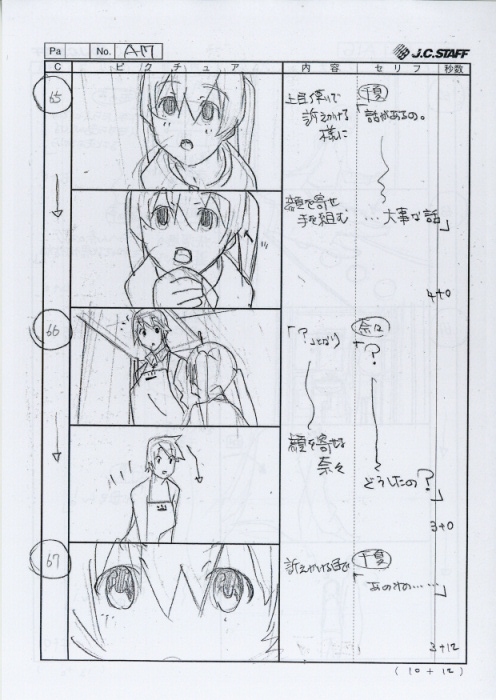 Pa No. AM
J.C.STAFF
C ピクチュア 内容 セリフ 秒数
65
上目使いで
訴えかける
様に
千夏
「話があるの。
顔を寄せ
手を組む
…大事な話」
4+0
66
「?」となり
奈々
「?
顔を寄せる
奈々
どうしたの?」
3+0
67
訴えかける目で
千夏
「あのね……」
3+12
(10+12)